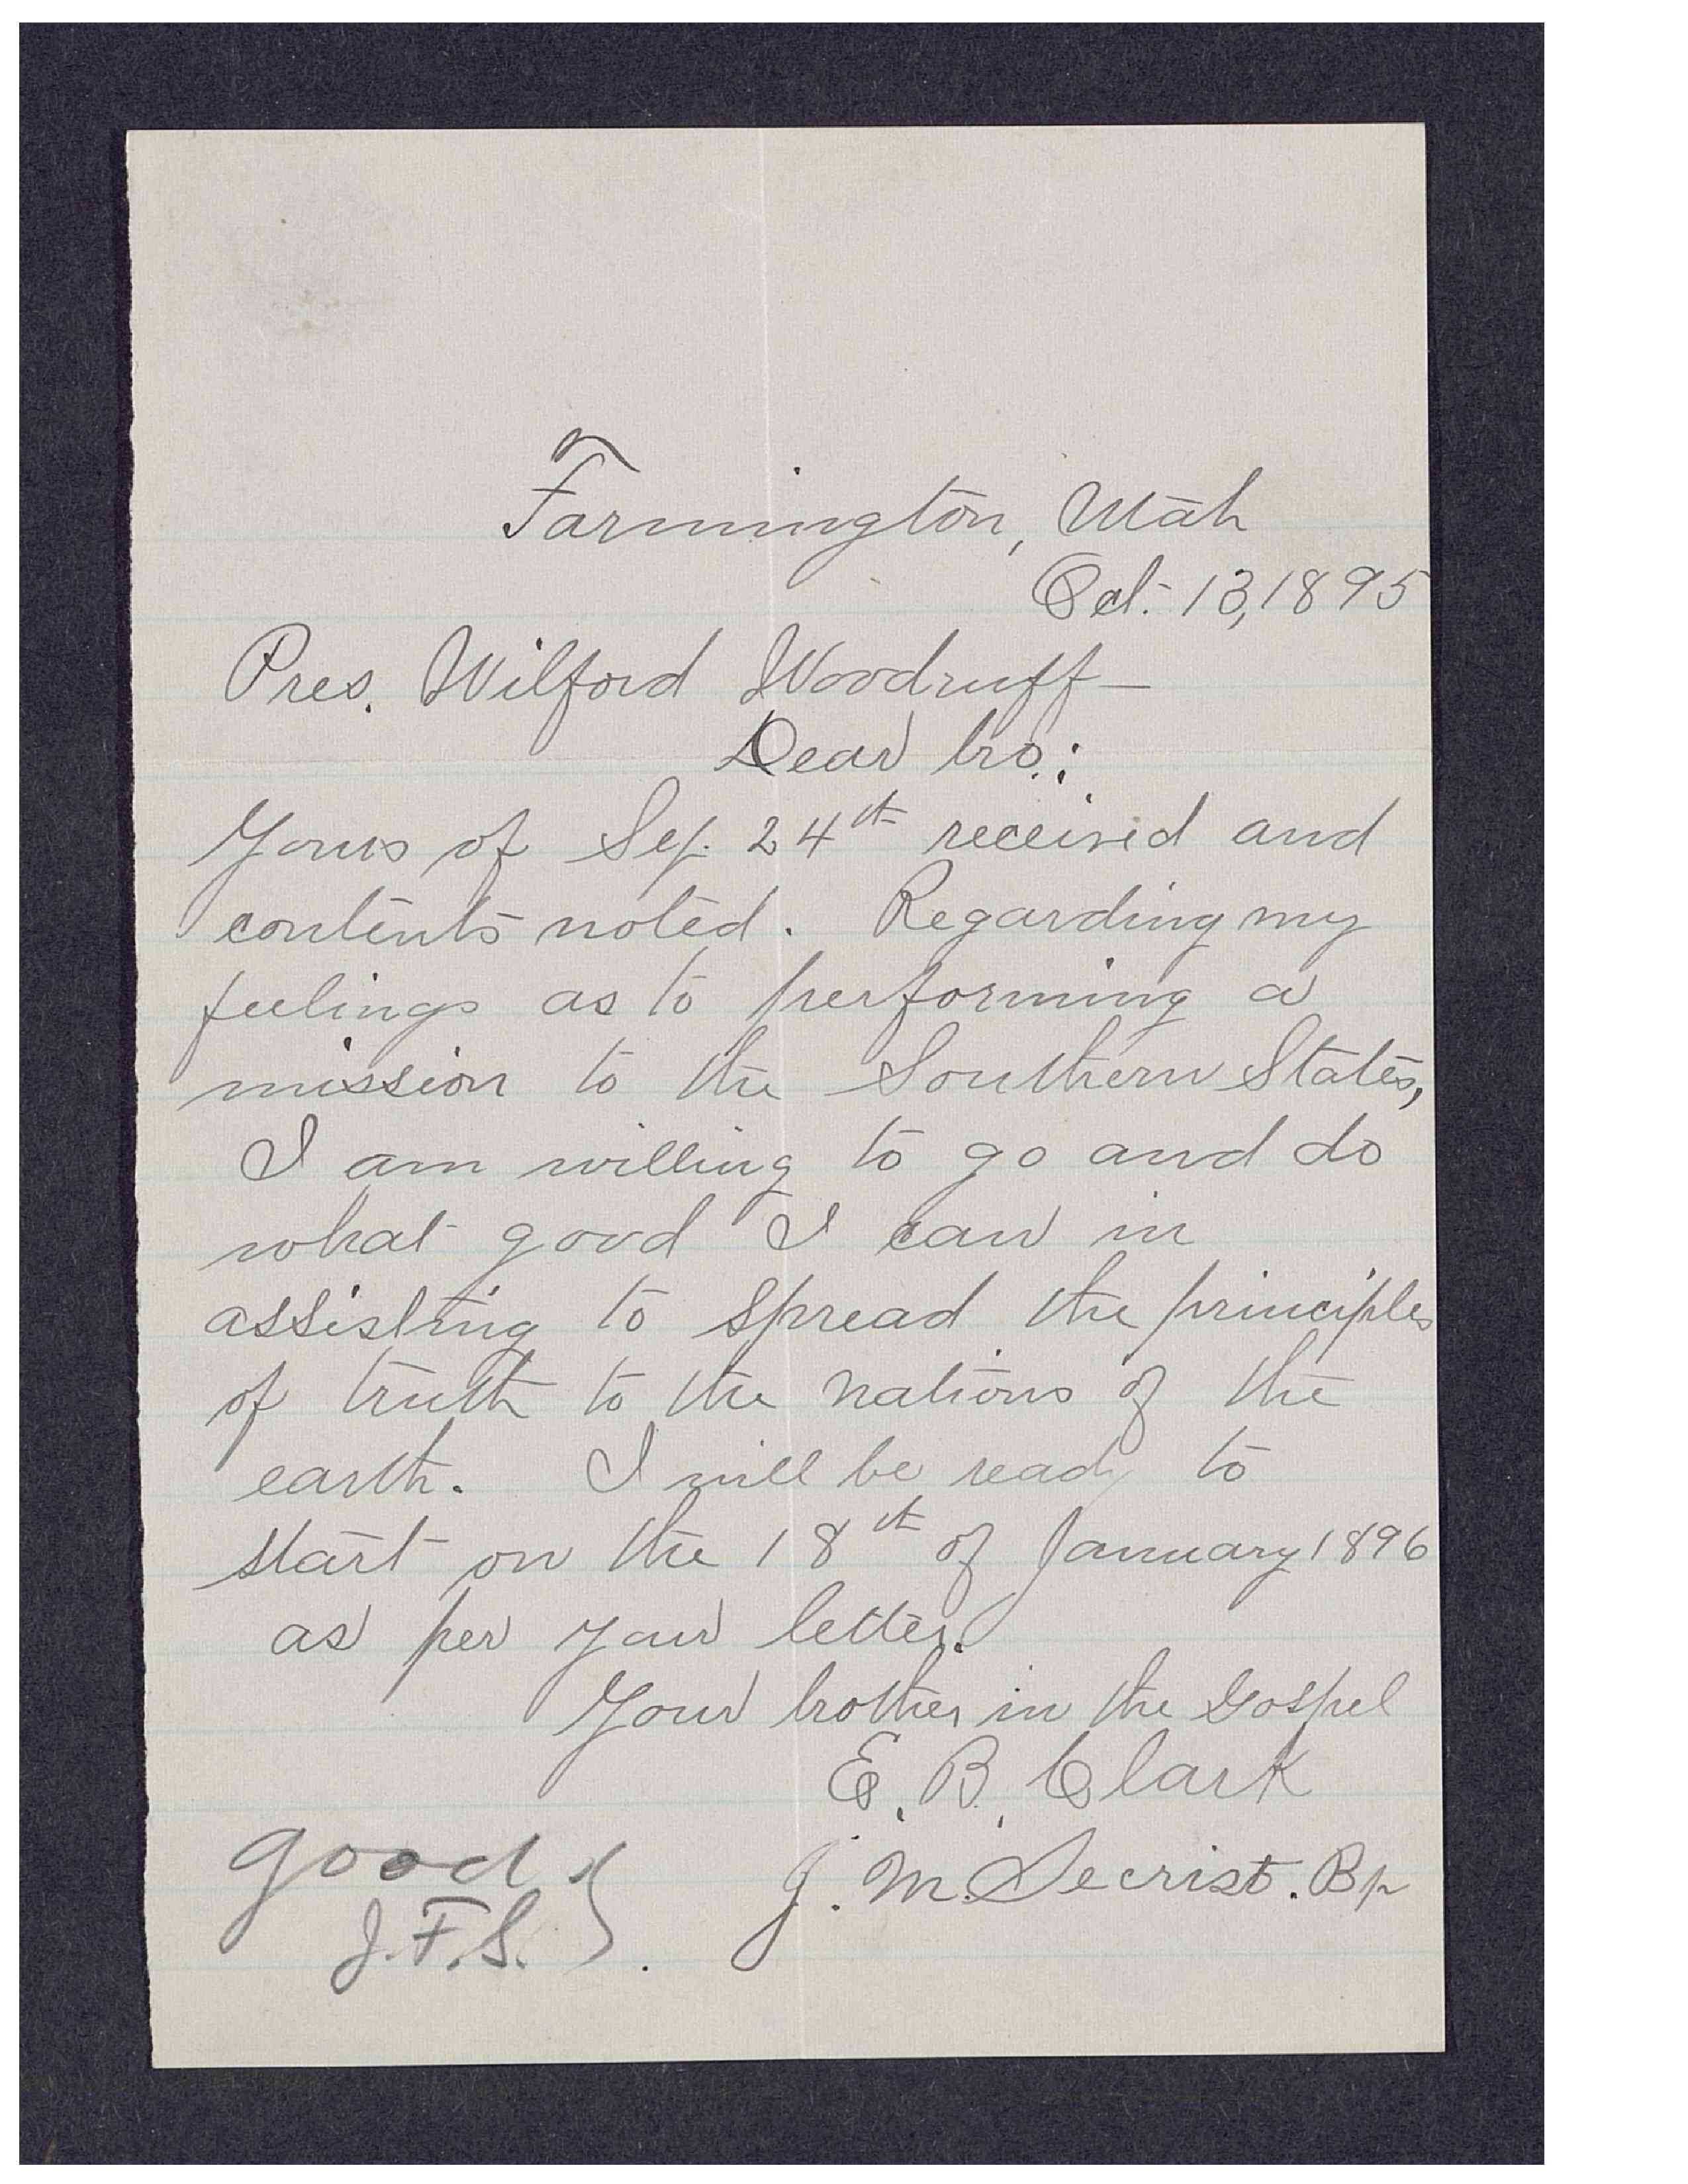 Farmington, Utah
Oct. 13, 1895
Pres. Wilford Woodruff—
Dear bro.:
Yours of Sep. 24th received and
contents noted. Regarding my
feelings as to performing a
mission to the Southern States,
I am willing to go and do
what good I can in
assisting to spread the principles
of truth to the nations of the
earth. I will be ready to
start on the 18th of January 1896
as per your letter.
Your brother in the Gospel
E. B. Clark
J. M. Secrist. Bp
good
J. F. S.